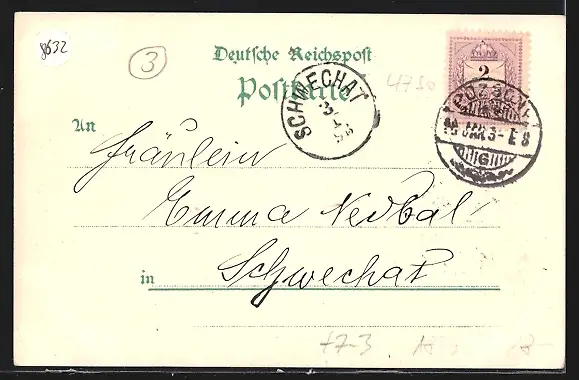 8632
3
Deutsche Reichspost
Postkarte
4750
2
SCHWECHAT
POZSONY
JAN. 3
E 8
G
An
Fräulein
Emma Nedbal
in
Schwechat